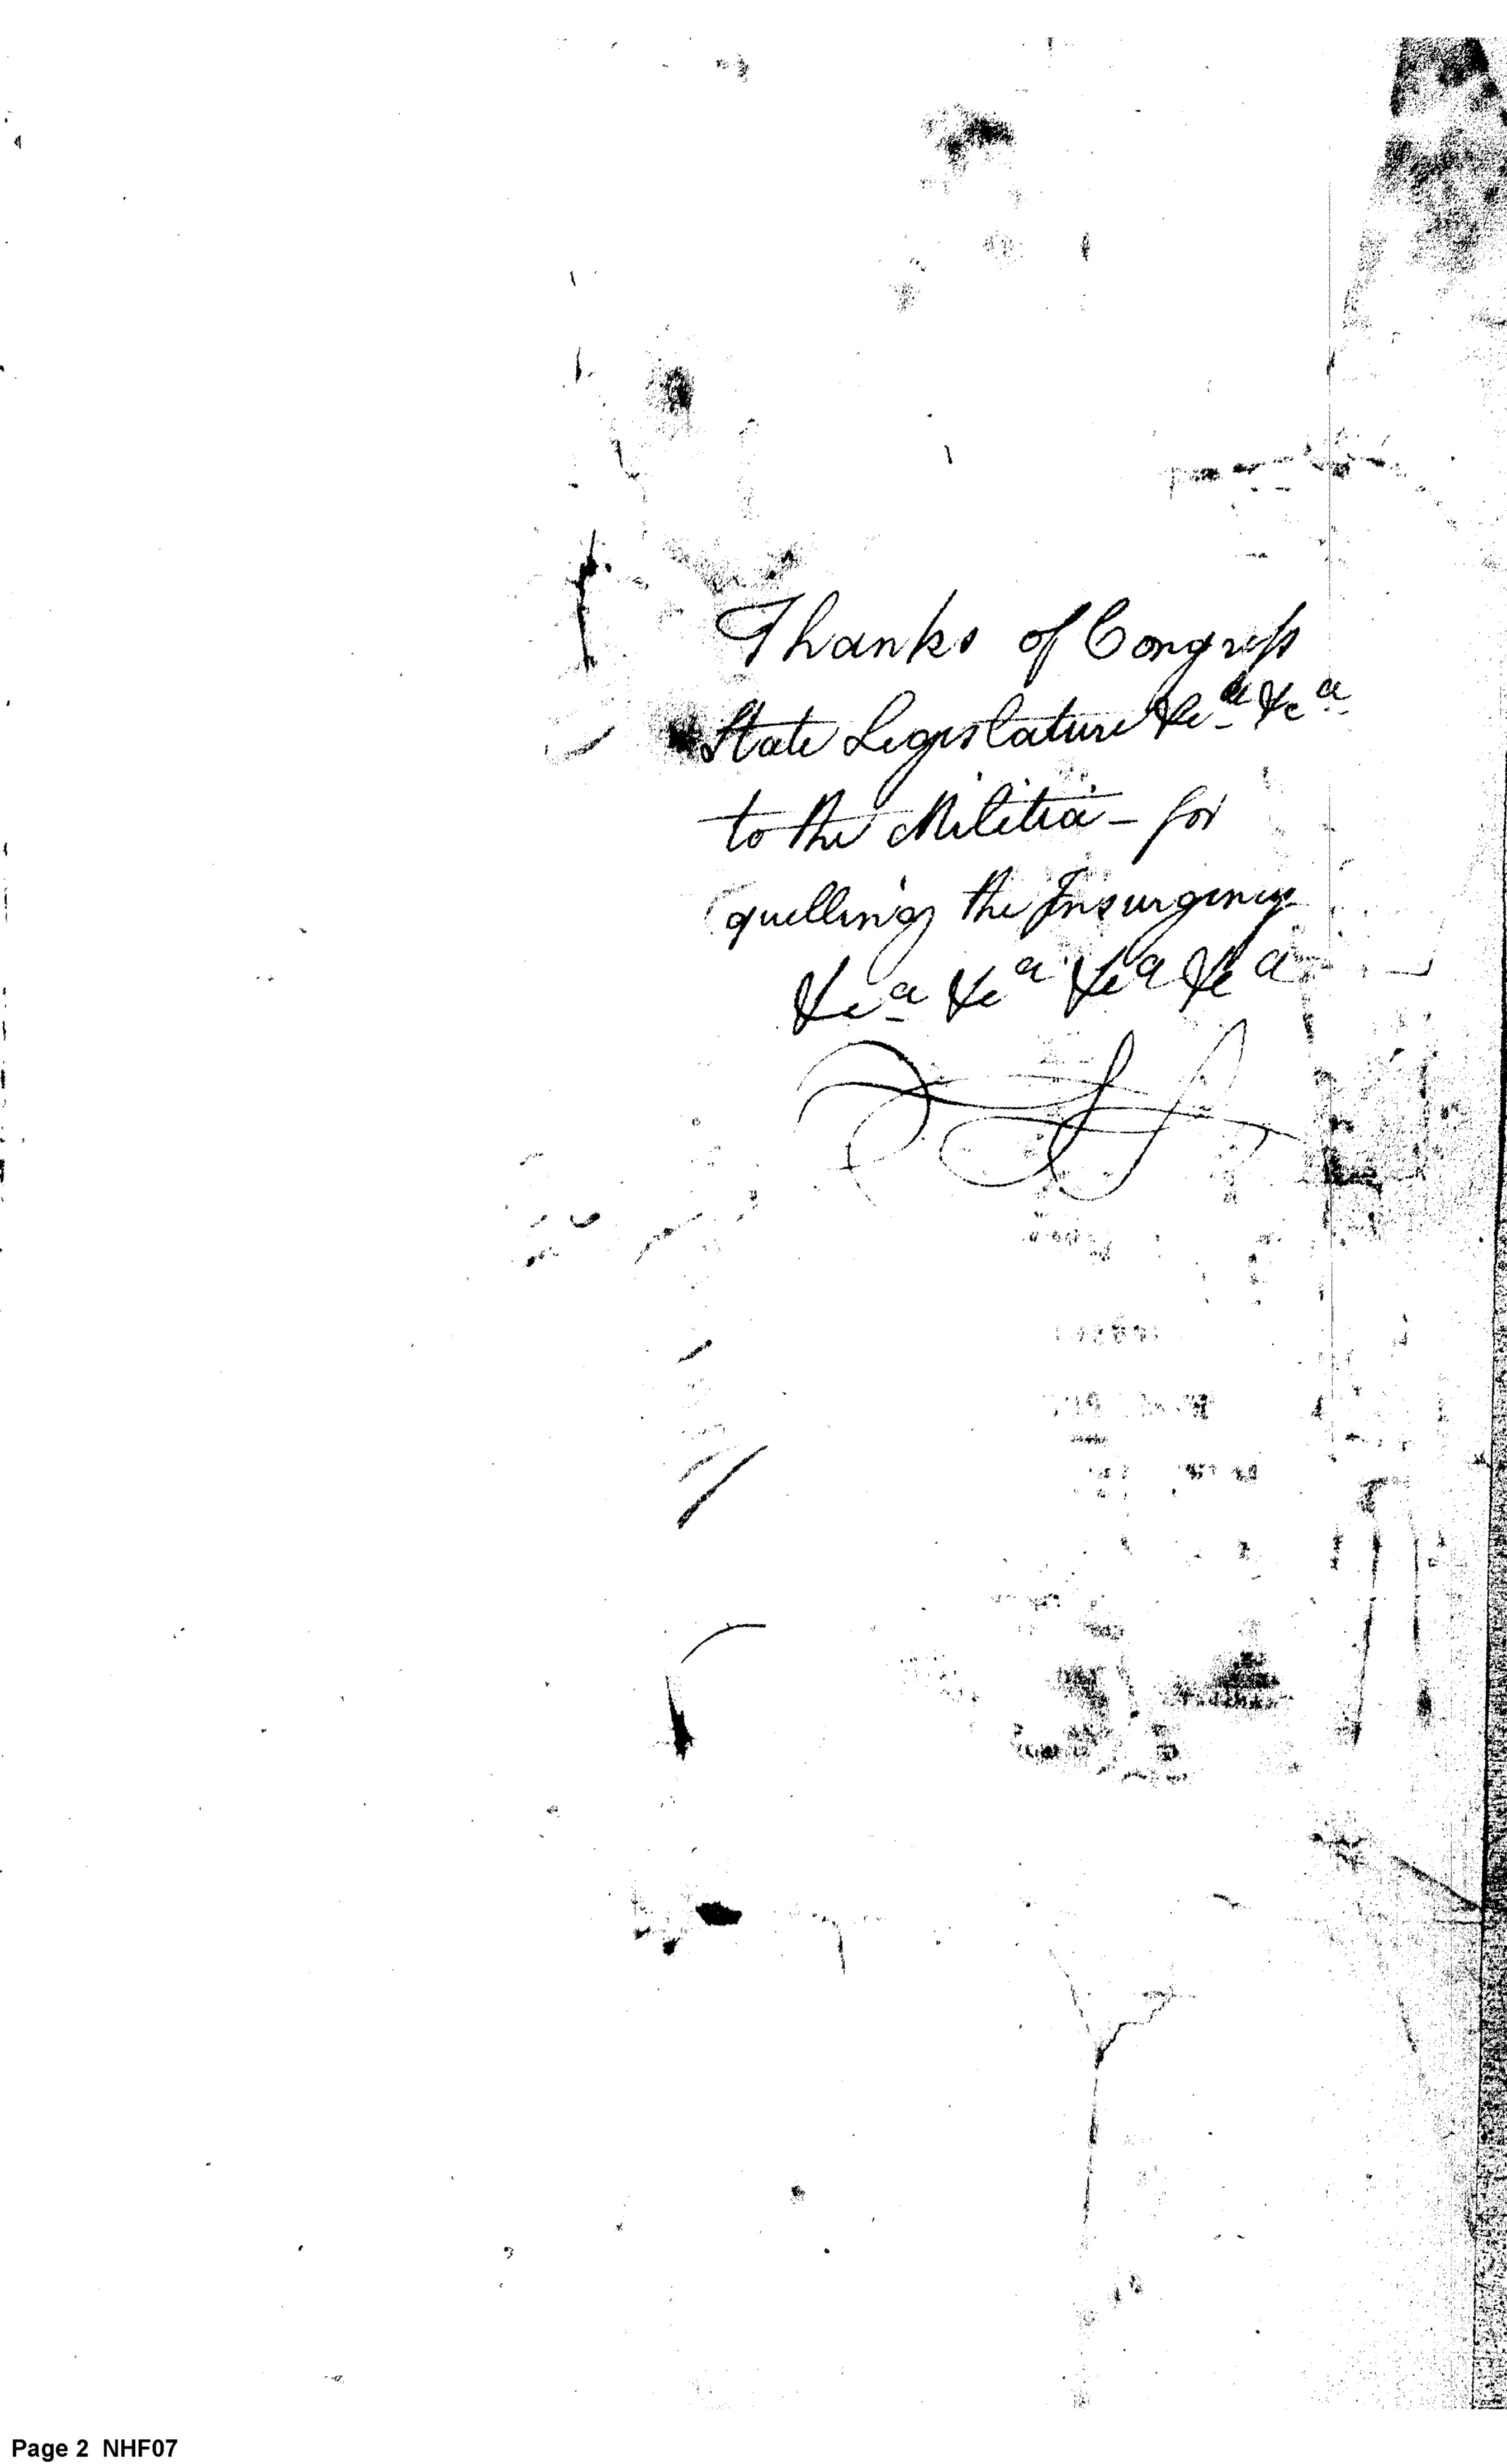 Thanks of Congress
State Legislature &c.a &c.a
to the Militia – for
quelling the Insurgency
&c.a &c.a &c.a &c.a
Page 2 NHF07